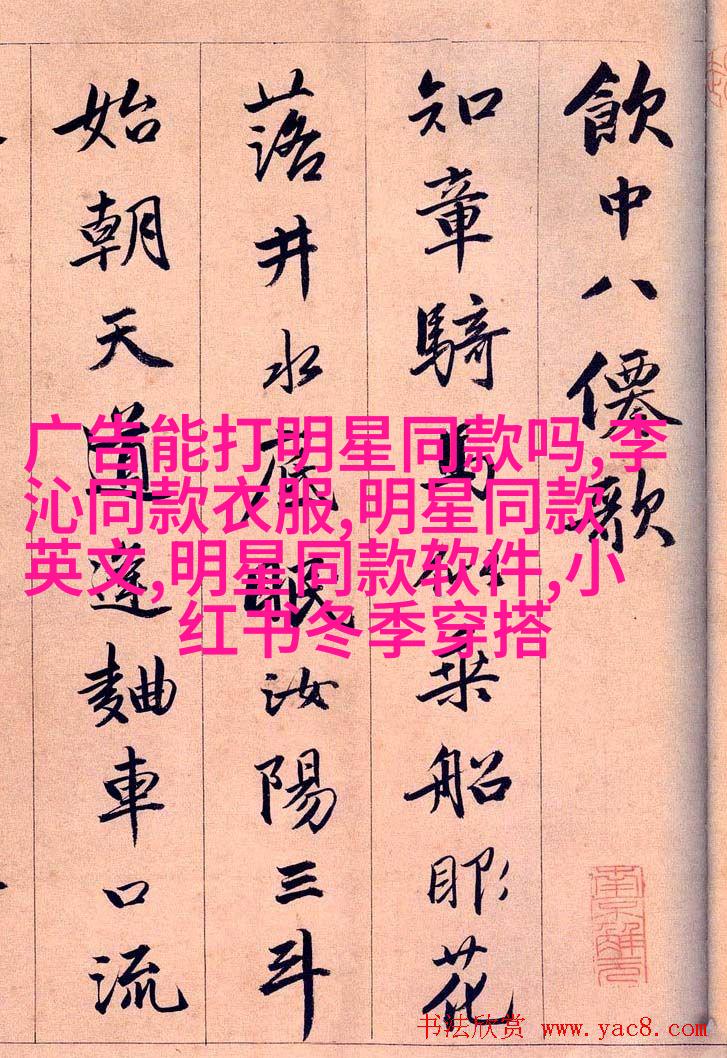 飲中八僊歌
知章騎馬似乘船眼花
落井水底眠汝陽三斗
始朝天道逢麯車口流
广告能打明星同款吗,李
沁同款衣服,明星同款
英文,明星同款软件,小
红书冬季穿搭
南京解元
书法欣赏 www.yac8.com